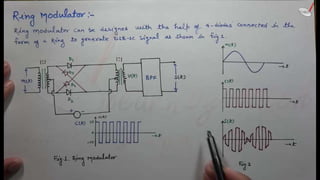 Ring Modulator:-
Ring Modulator can be designed with the half of 4-diodes connected in the
form of a Ring to generate DSB-SC signal as shown in Fig 1.
m(t)
D1
D2
V(t)
BPF
S(t)
C(t)
m(t)
t
C(t)
t
S(t)
t
Fig 1. Ring Modulator
Fig 2